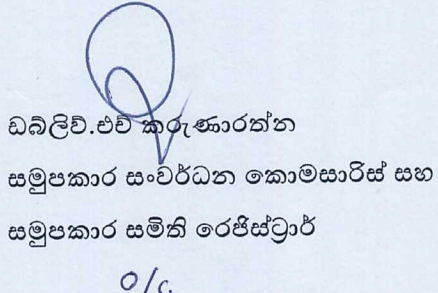 ඩබ්ලිව්.එච් කරුණාරත්න
සමුපකාර සංවර්ධන කොමසාරිස් සහ
සමුපකාර සමිති රෙජිස්ට්‍රාර්
o/c